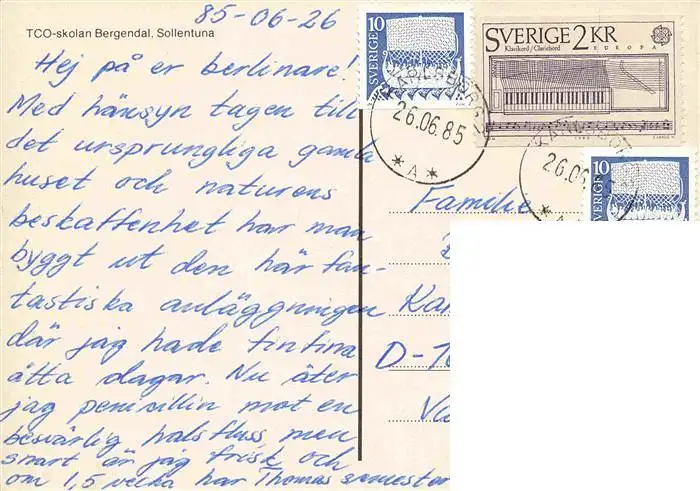 85-06-26
TCO-skolan Bergendal, Sollentuna
Hej på er berlinare!
Med hänsyn tagen till
det ursprungliga gamla
huset och naturens
beskaffenhet har man
byggt ut den här fan-
tastiska anläggningen
där jag hade fintfina
åtta dagar. Nu äter
jag penicillin mot en
besvärlig halsfluss, men
snart är jag frisk och
om 1,5 vecka har Thomas semester
10
SVERIGE
SVERIGE 2 KR
Klavikord / Clavichord
EUROPA
KARLSBORG
26.06.85
* A *
KARLSBORG
26.06.
10
SVERIGE
Familie
Ka
D-10
Va